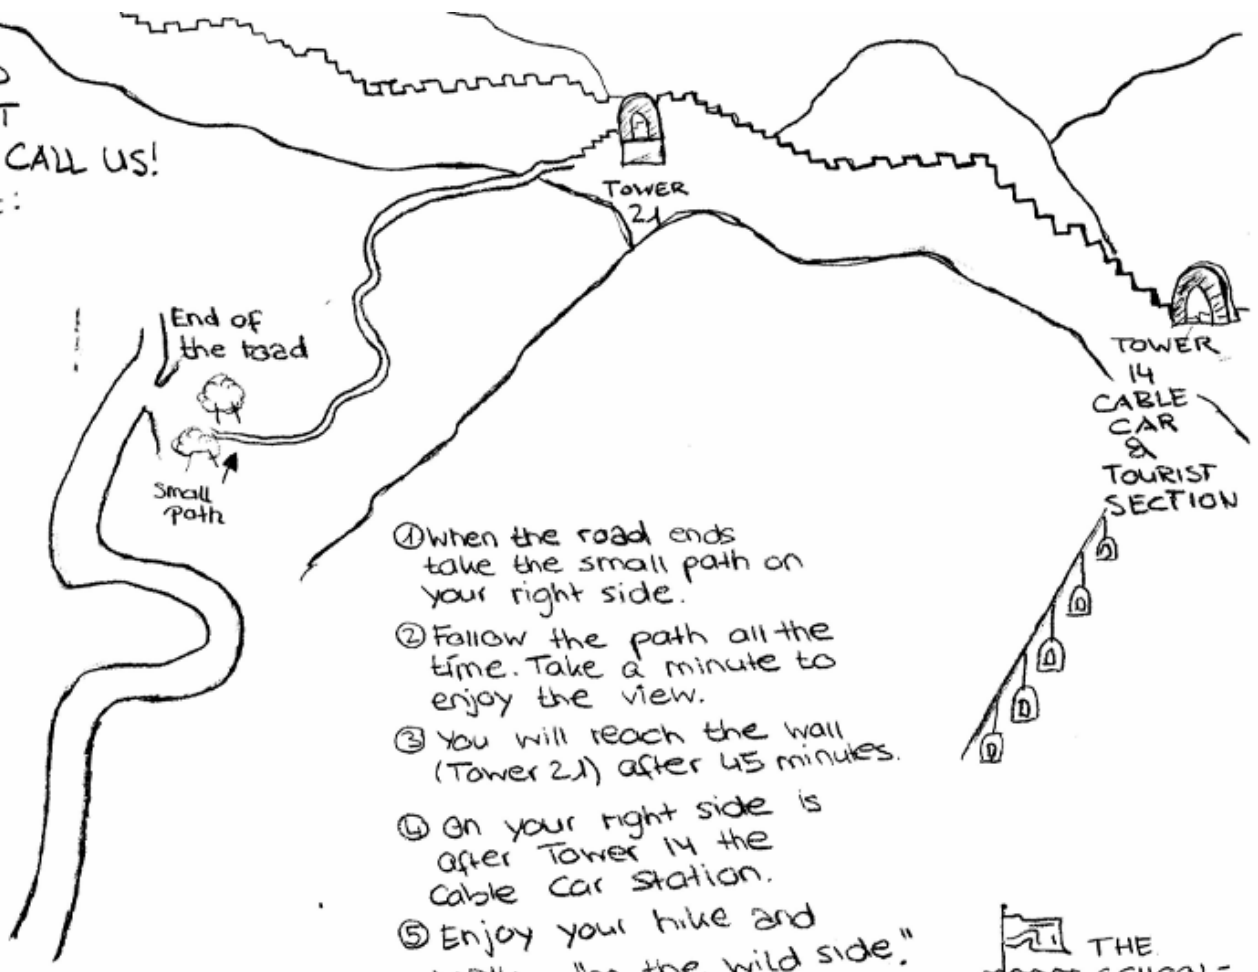 T
CALL US!
:
TOWER
21
End of
the road
TOWER
14
CABLE
CAR
&
TOURIST
SECTION
Small
path
① When the road ends
take the small path on
your right side.
② Follow the path all the
time. Take a minute to
enjoy the view.
③ You will reach the wall
(Tower 21) after 45 minutes.
④ On your right side is
after Tower 14 the
Cable Car Station.
⑤ Enjoy your hike and
the wild side."
THE